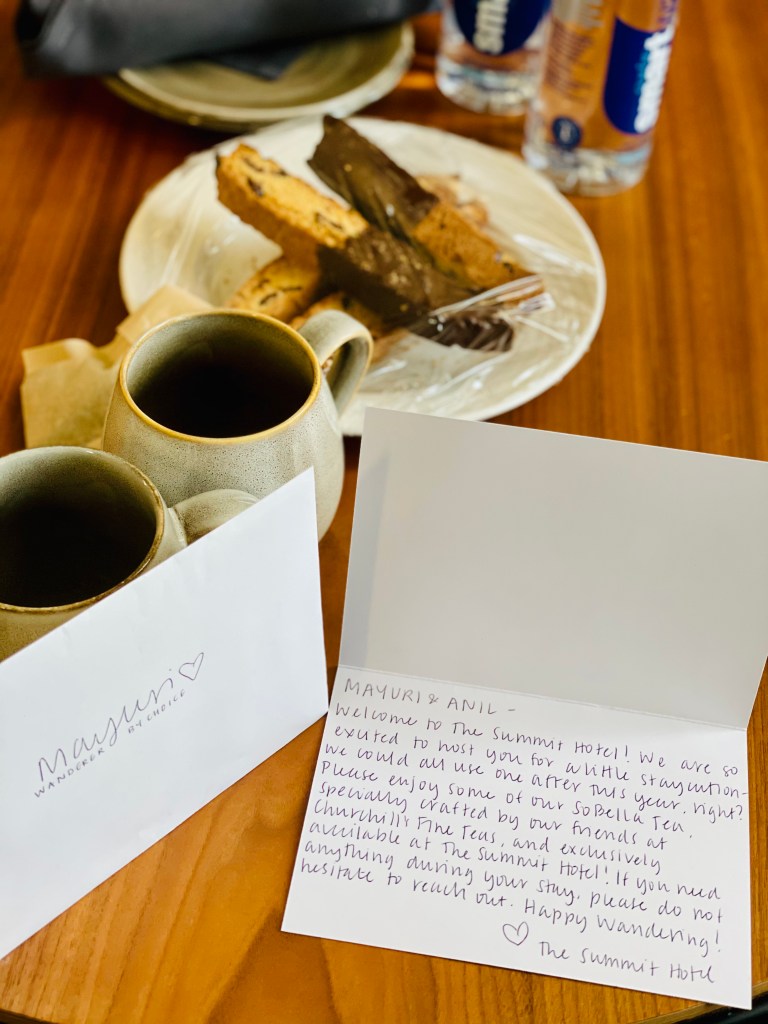 smart
Mayuri
WANDERER BY CHOICE
MAYURI & ANIL -
Welcome to The Summit Hotel! We are so
excited to host you for a little staycation-
we could all use one after this year, right?
Please enjoy some of our SoBella Tea,
specially crafted by our friends at
Churchill's Fine Teas, and exclusively
available at The Summit Hotel! If you need
anything during your stay, please do not
hesitate to reach out. Happy Wandering!
The Summit Hotel